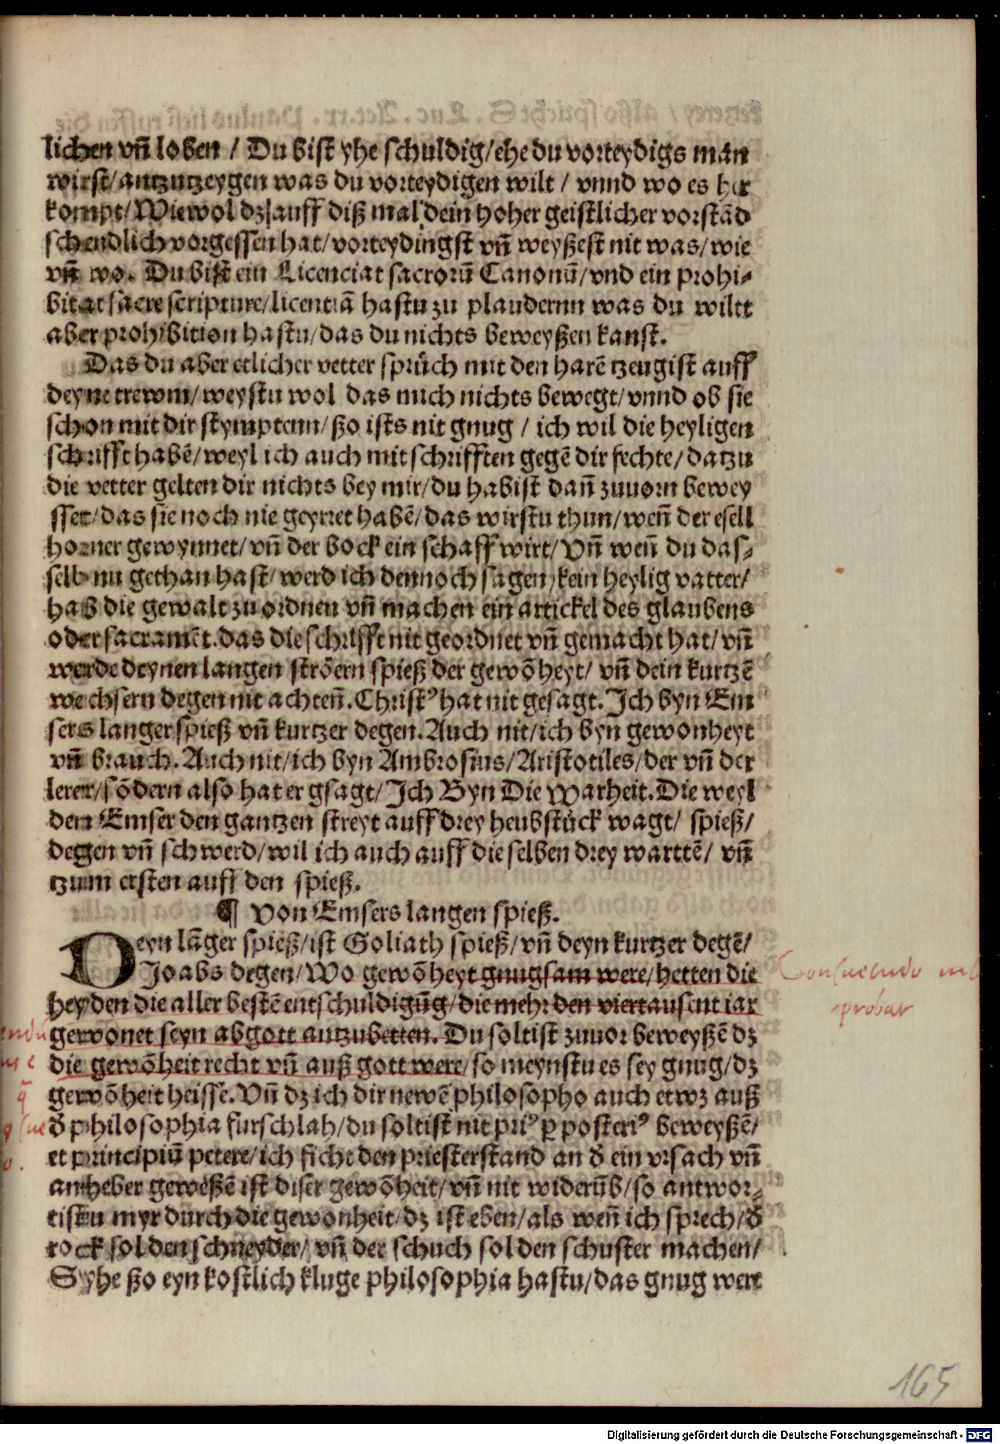 lichen vñ loben / Du bist yhe schuldig/ehe du vorteydigs man
wirst/antzutzeygen was du vorteydigen wilt / vnnd wo es her
kompt/Wiewol dz auff diß mal dein hoher geistlicher vorstād
schendlich vorgessen hat/vorteydingst vñ weyßest nit was/wie
vñ wo. Du bist ein Licenciat sacrorū Canonū/vnd ein prohi-
bitat sacre scripture/licentiā hastu zu plaudernn was du wiltt
aber prohibition hastu/das du nichts beweyßen kanst.
Das du aber etlicher vetter sprüch mit den harē tzeugist auff
deyne trewm/weystu wol das mich nichts bewegt/vnnd ob sie
schon mit dir stymptenn/ßo ists nit gnug / ich wil die heyligen
schrifft habē/weyl ich auch mit schrifften gegē dir fechte/datzu
die vetter gelten dir nichts bey mir/du habist dañ zuuorn bewey
sset/das sie noch nie geyrret habē/das wirstu thun/weñ der esell
horner gewynnet/vñ der bock ein schaff wirt/Vñ weñ du das-
selb nu gethan hast/werd ich dennoch sagen/kein heylig vatter/
hab die gewalt zu ordnen vñ machen ein artickel des glaubens
oder sacramēt.das die schrifft nit geordnet vñ gemacht hat/vñ
werde deynen langen ströern spieß der gewōheyt/ vñ dein kurtzē
wechsern degen nit achteñ.Christꝰ hat nit gesagt.Ich byn Em
sers langer spieß vñ kurtzer degen.Auch nit/ich byn gewonheyt
vñ brauch.Auch nit/ich byn Ambrosius/Aristotiles/der vñ der
lerer/sōdern also hat er gsagt/Ich Byn Die Warheit.Die weyl
denn Emser den gantzen streyt auff drey heubstück wagt/ spieß/
degen vñ schwerd/wil ich auch auff die selben drey warttē/ vñ
tzum ersten auff den spieß.
¶ Von Emsers langen spieß.
Deyn lāger spieß/ist Goliath spieß/vñ deyn kurtzer degē/
Joabs degen/Wo gewōheyt gnugsam were/hetten die
heyden die aller bestē entschuldigūg/die mehr den viertausent iar
gewonet seyn abgott antzubetten. Du soltist zuuor beweyßē dz
die gewōheit recht vñ auß gott were/so meynstu es sey gnug/dz
gewōheit heisse.Vñ dz ich dir newē philosopho auch etwz auß
đ philosophia furschlah/du soltist nit priꝰ ꝑ posteriꝰ beweyßē/
et principiū petere/ich fiche den priesterstand an đ ein vrsach vñ
anheber gewesē ist diser gewōheit/vñ nit widerūb/so antwor-
tistu myr durch die gewonheit/dz ist eben/als weñ ich sprech/đ
rock sol den schneyder/ vñ der schuch sol den schuster machen/
Syhe ßo eyn kostlich kluge philosophia hastu/das gnug were
Consuetudo
probar
165
Digitalisierung gefördert durch die Deutsche Forschungsgemeinschaft - DFG